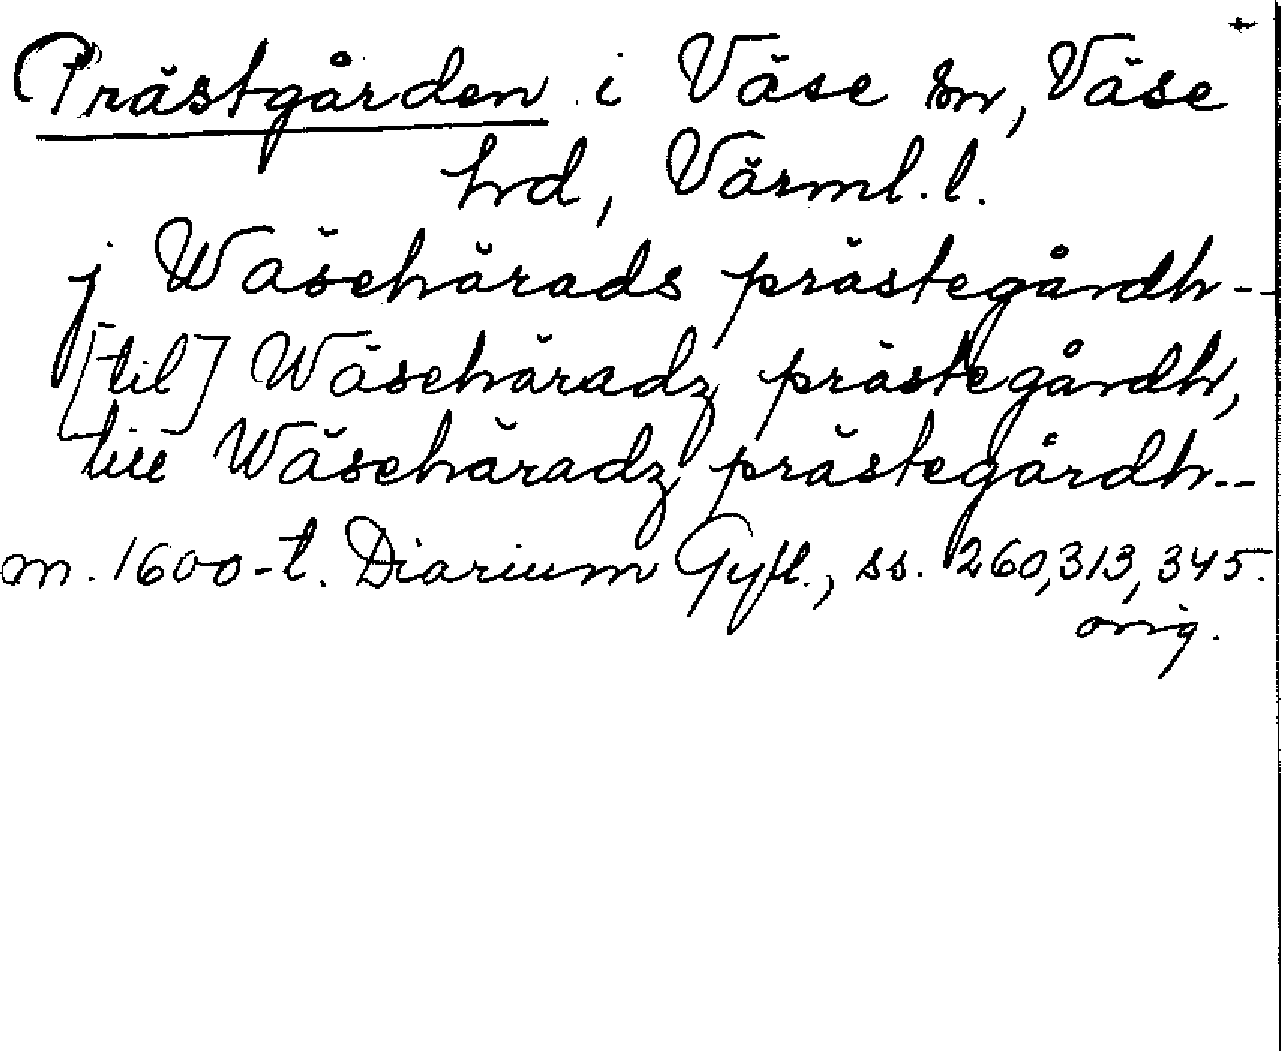 Prästgården i Väse sn, Väse
hd, Värml. l.
j Wäsehärads prästegårdh--
[til] Wäsehäradz prästegårdh,
till Wäsehäradz prästegårdh--
m. 1600-t. Diarium Gyll., ss. 260, 313, 345.
orig.